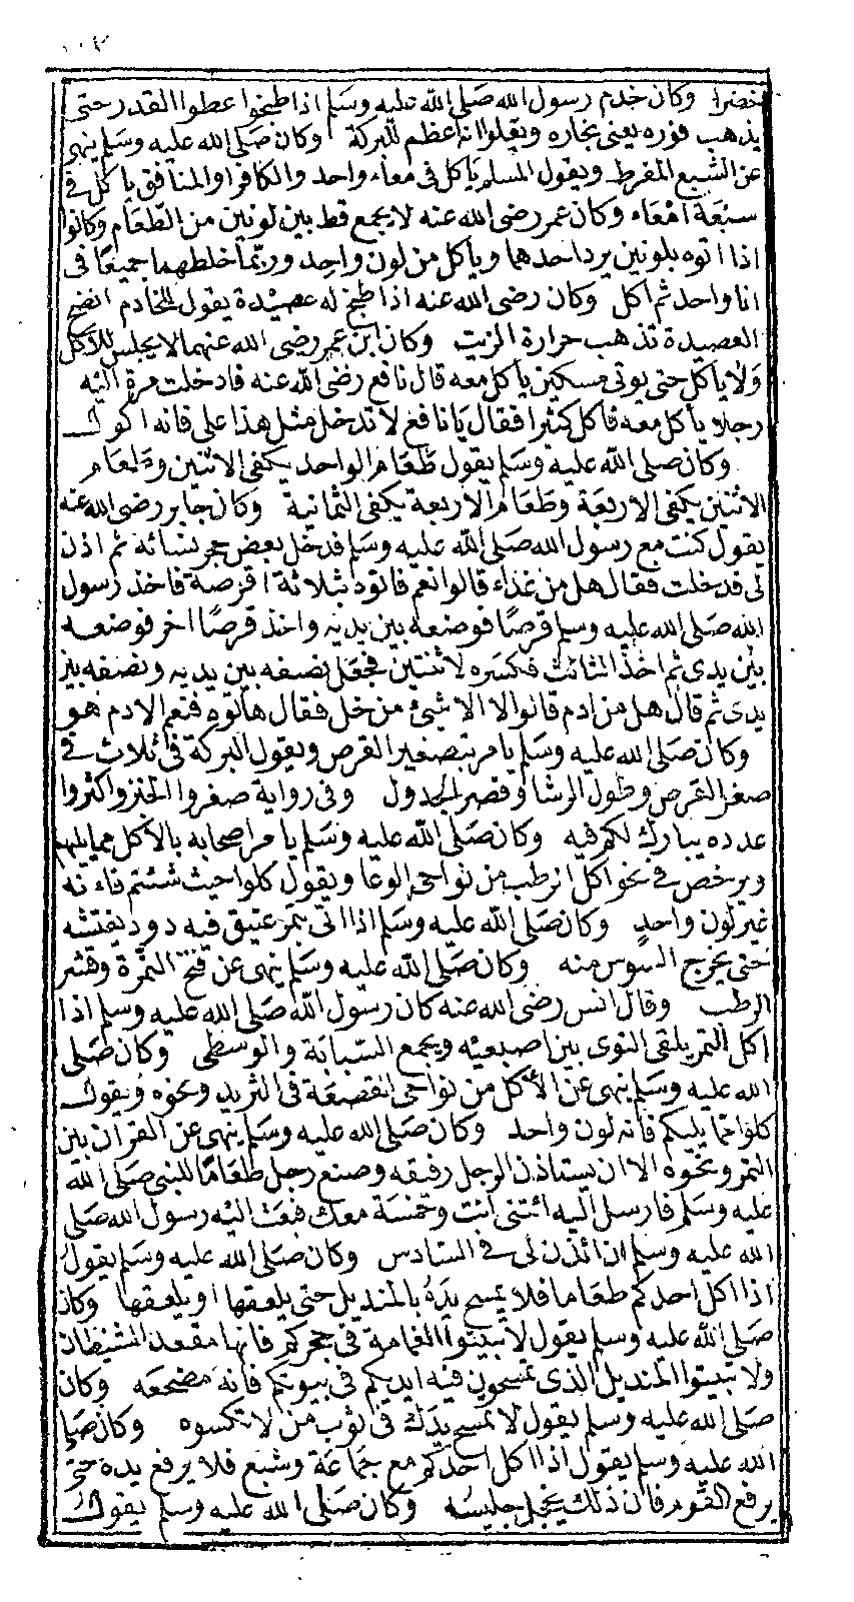 خضرا وكان خدم رسول الله صلى الله عليه وسلم اذا طبخوا عطوا القدر حتى
يذهب فوره يعنى بخاره ويقولوا انه اعظم للبركة وكان صلى الله عليه وسلم ينهى
عن الشبع المفرط ويقول المسلم ياكل فى معاء واحد والكافر او المنافق ياكل فى
سبعة امعاء وكان عمر رضى الله عنه لا يجمع قط بين لونين من الطعام وكانوا
اذا اتوه بلونين يرد احدهما وياكل من لون واحد وربما خلطهما جميعا فى
انا واحد ثم اكل وكان رضى الله عنه اذا طبخ له عصيدة يقول للخادم انضج
العصيدة تذهب حرارة الزيت وكان ابن عمر رضى الله عنهما لا يجلس للاكل
ولا ياكل حتى يوتى بمسكين ياكل معه قال نافع رضى الله عنه فادخلت مرة اليه
رجلا ياكل معه فاكل كثيرا فقال يا نافع لا تدخل مثل هذا على فانه اكول
وكان صلى الله عليه وسلم يقول طعام الواحد يكفى الاثنين وطعام
الاثنين يكفى الاربعة وطعام الاربعة يكفى الثمانية وكان جابر رضى الله عنه
يقول كنت مع رسول الله صلى الله عليه وسلم فدخل بعض حجر نسائه ثم اذن
لى فدخلت فقال هل من غذاء قالوا نعم فاتوه بثلاثة اقرصة فاخذ رسول
الله صلى الله عليه وسلم قرصا فوضعه بين يديه واخذ قرصا اخر فوضعه
بين يدى ثم اخذ الثالث فكسره لاثنتين فجعل نصفه بين يديه ونصفه بين
يدى ثم قال هل من ادم قالوا لا الا شىء من خل فقال هاتوه فنعم الادم هو
وكان صلى الله عليه وسلم يامر بتصغير القرص ويقول البركة فى ثلاث فى
صغر القرص وطول الرشا وقصر الجدول وفى رواية صغروا الخبز واكثروا
عدده يبارك لكم فيه وكان صلى الله عليه وسلم يامر اصحابه بالاكل مما يليهم
ويرخص فى نحو اكل الرطب من نواحى الوعا ويقول كلوا حيث شئتم فانه
غير لون واحد وكان صلى الله عليه وسلم اذا اتى بتمر عتيق فيه دود يفتشه
حتى يخرج السوس منه وكان صلى الله عليه وسلم ينهى عن فتح التمرة وقشر
الرطب وقال انس رضى الله عنه كان رسول الله صلى الله عليه وسلم اذا
اكل التمر يلقى النوى بين اصبعيه ويجمع السبابة والوسطى وكان صلى
الله عليه وسلم ينهى عن الاكل من نواحى القصعة فى الثريد ونحوه ويقول
كلوا مما يليكم فانه لون واحد وكان صلى الله عليه وسلم ينهى عن القران بين
التمر ونحوه الا ان يستاذن الرجل رفيقه وصنع رجل طعاما للنبى صلى الله
عليه وسلم فارسل اليه ائتنى انت وخمسة معك فبعث اليه رسول الله صلى
الله عليه وسلم ان ائذن لى فى السادس وكان صلى الله عليه وسلم يقول
اذا اكل احدكم طعاما فلا يمسح يده بالمنديل حتى يلعقها او يلعقها وكان
صلى الله عليه وسلم يقول لا تبيتوا القمامة فى حجركم فانها مقعد الشيطان
ولا تبيتوا المنديل الذى تمسحون فيه ايديكم فى بيوتكم فانه مضجعه وكان
صلى الله عليه وسلم يقول لا تمسح يدك فى ثوب من لا تكسوه وكان صلى
الله عليه وسلم يقول اذا اكل احدكم مع جماعة وشبع فلا يرفع يده حتى
يرفع القوم فان ذلك يخجل جليسه وكان صلى الله عليه وسلم يقول